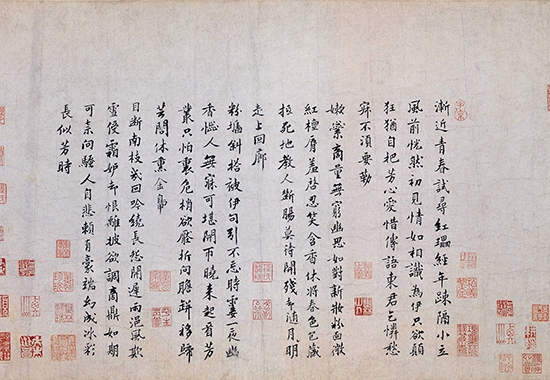 漸近青春試尋紅瓃經年疎隔小立
風前恍然初見情如相識為伊只欲顛
狂猶自把芳心愛惜傳語東君乞憐愁
寂不須要勒
嫩蘂商量無窮幽思如對新妝粉面微
紅檀脣羞啓忍笑含香休將春色包藏
抵死地教人斷腸莫待開殘却隨明月
走上回廊
粉墻斜搭被伊勾引不忘時霎一夜幽
香惱人無寐可堪開帀曉來起看芳
叢只怕裏危梢欲壓折向膽缾移歸
芸閣休熏金鴨
目斷南枝幾回吟繞長怨開遲雨浥風欺
雪侵霜妬却恨離披欲調商鼎如期
可柰向騷人自悲賴有豪端幻成冰彩
長似芳時